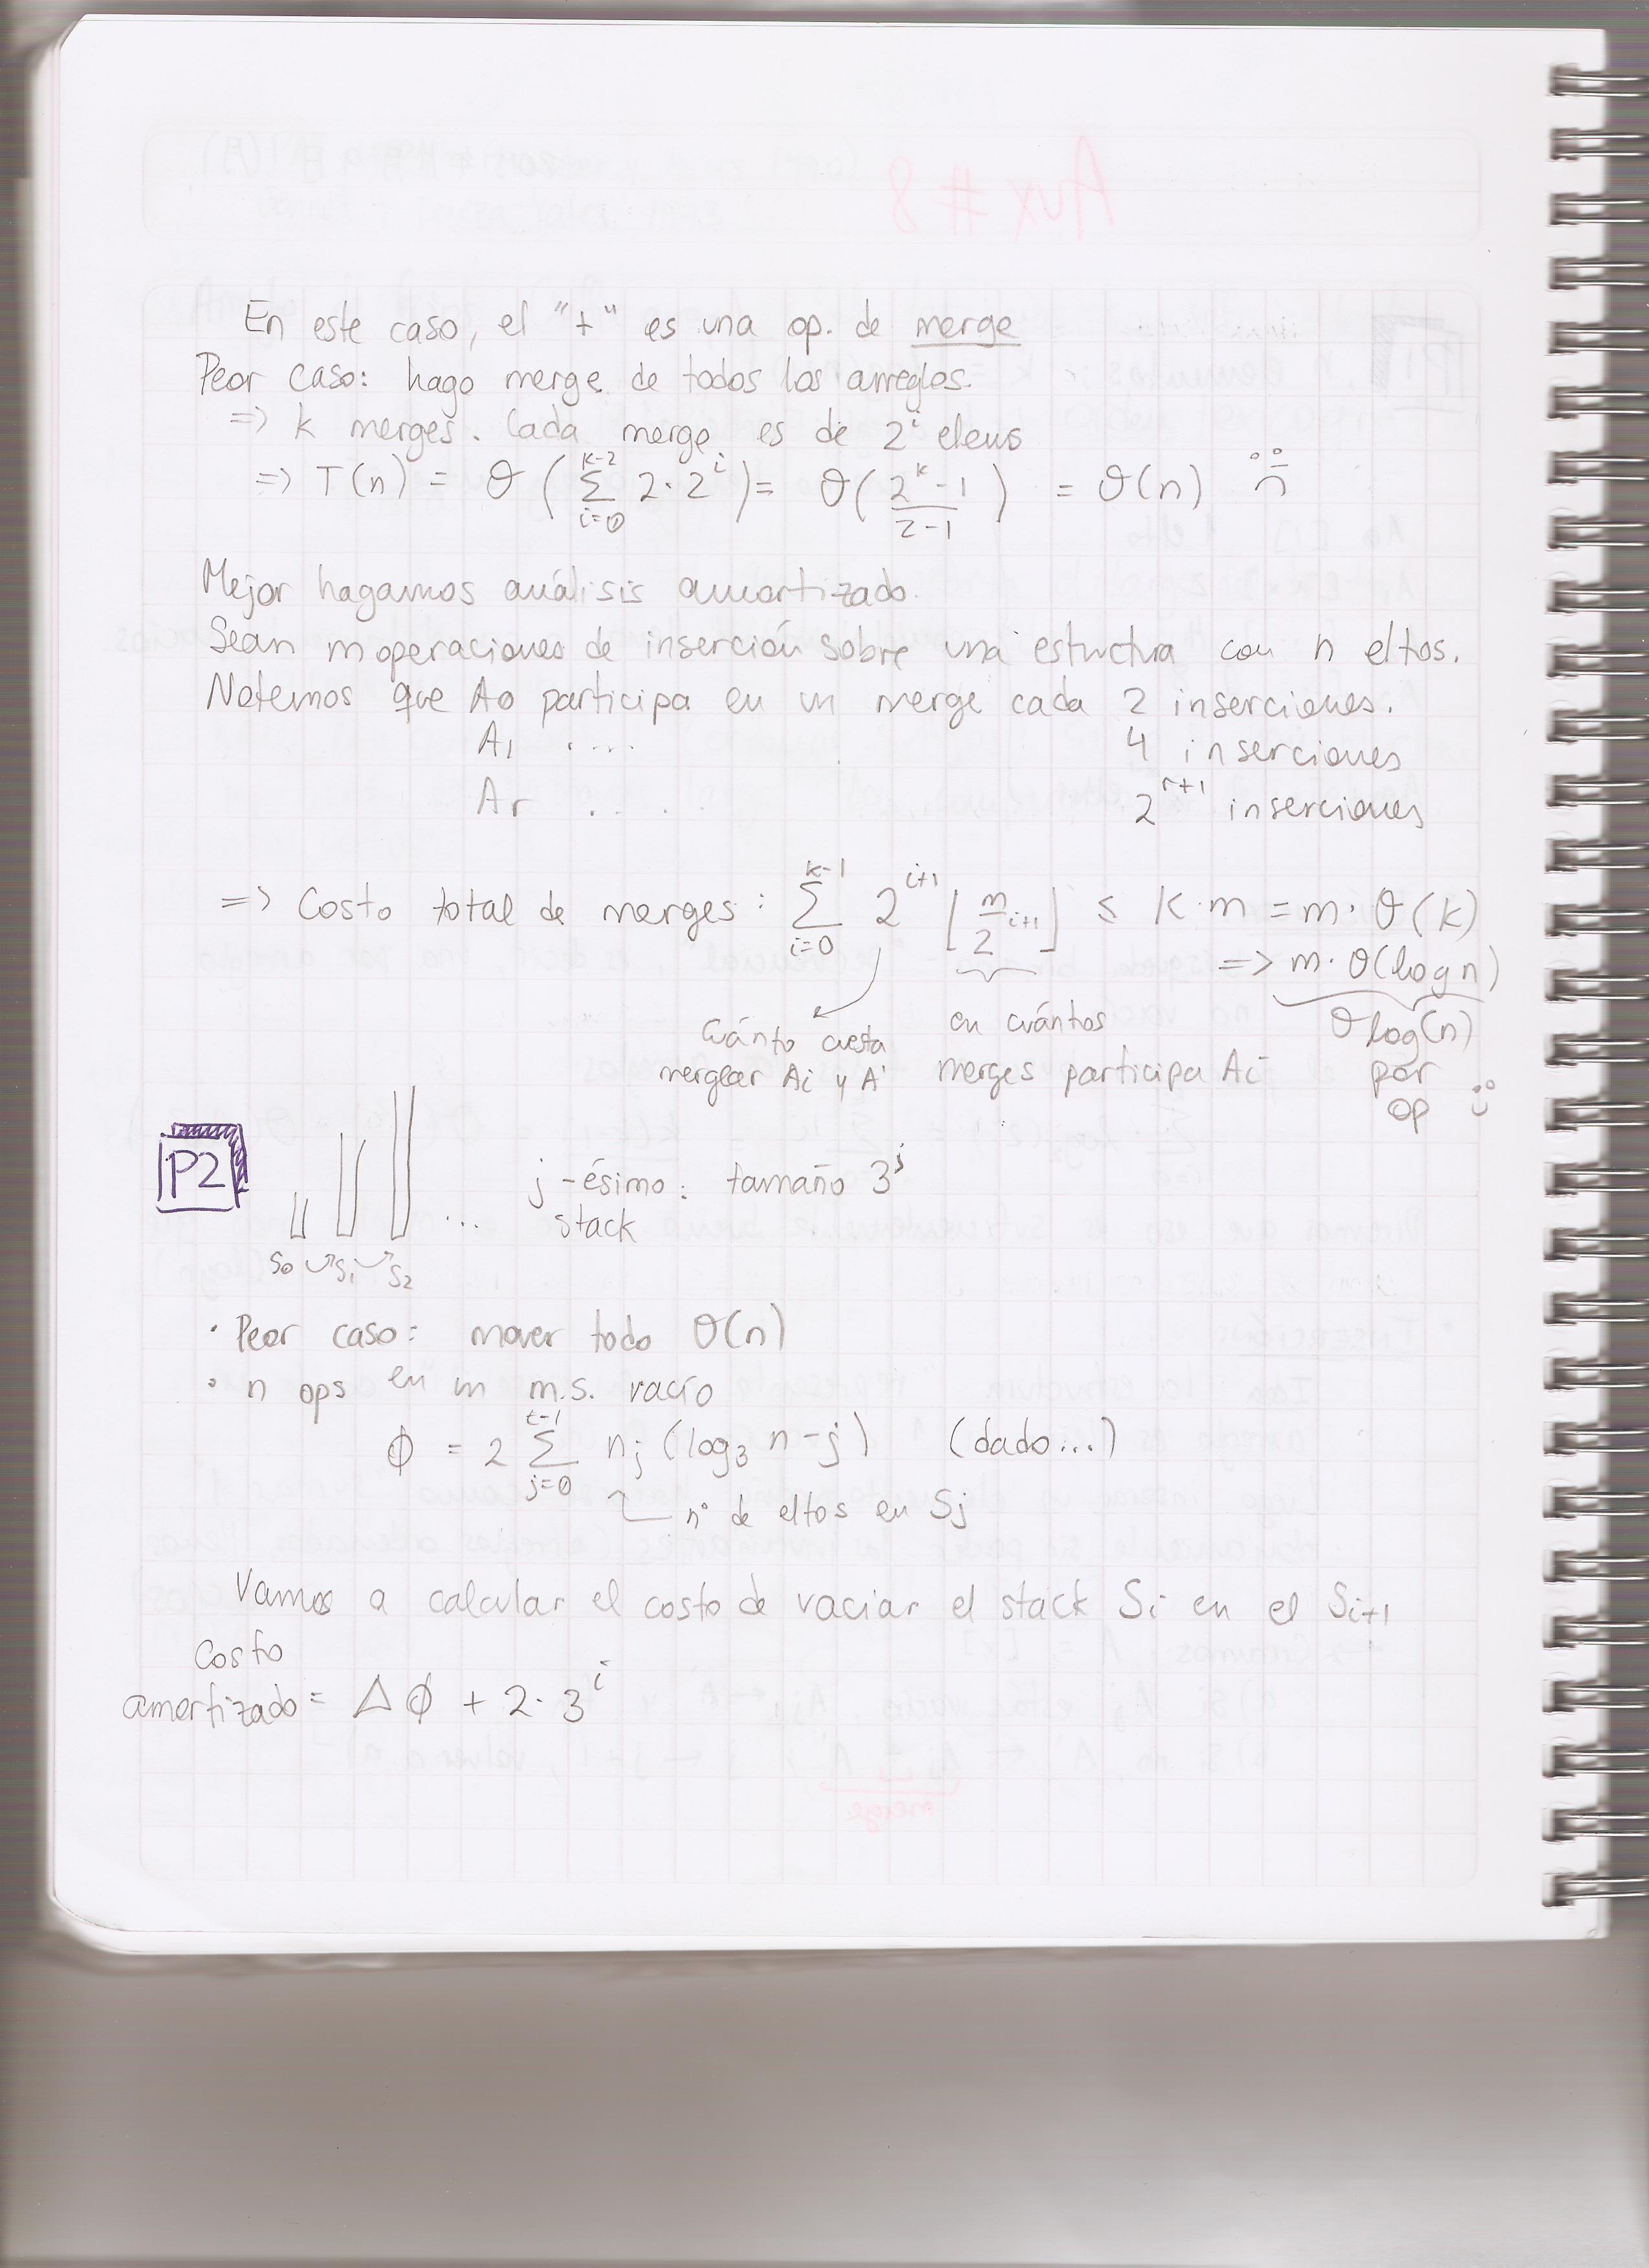 En este caso, el "+" es una op. de merge
Peor caso: hago merge de todos los arreglos.
=> k merges. Cada merge es de 2^i elems
=> T(n) = θ ( Σ_{i=0}^{k-2} 2·2^i ) = θ ( (2^k - 1)/(2-1) ) = θ(n)
Mejor hagamos análisis amortizado.
Sean m operaciones de inserción sobre una estructura con n eltos.
Notemos que A0 participa en un merge cada 2 inserciones.
A1 .... 4 inserciones
Ar .... 2^{r+1} inserciones
=> Costo total de merges: Σ_{i=0}^{k-1} 2^{i+1} ⌊ m/2^{i+1} ⌋ ≤ k·m = m·θ(k)
=> m·θ(log n)
Cuánto cuesta mergear Ai y A'
en cuántos merges participa Ai
θ log(n) por op
P2
S0 S1 S2 ...
j-ésimo stack: tamaño 3^j
· Peor caso: mover todo θ(n)
· n ops en un m.s. vacío
ϕ = 2 Σ_{j=0}^{t-1} nj (log3 n - j) (dado...)
n° de eltos en Sj
Vamos a calcular el costo de vaciar el stack Si en el Si+1
Costo
amortizado = Δϕ + 2·3^i